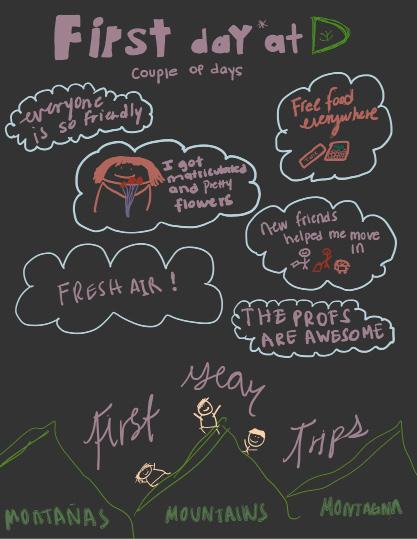 First day* at D
couple of days
everyone
is so friendly
Free food
everywhere
I got
matriculated
and pretty
flowers
new friends
helped me move
in
FRESH AIR !
THE PROFS
ARE AWESOME
First year Trips
MONTAÑAS
MOUNTAINS
MONTAGNA